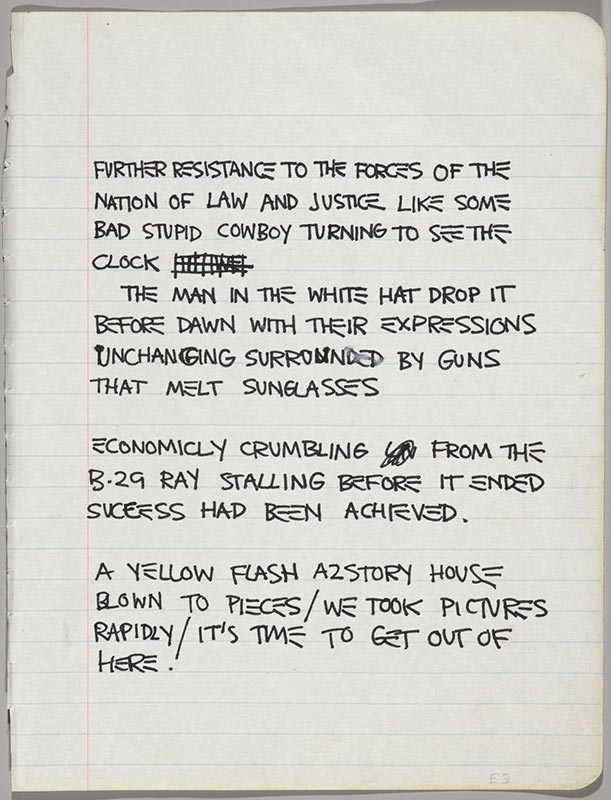 FURTHER RESISTANCE TO THE FORCES OF THE
NATION OF LAW AND JUSTICE LIKE SOME
BAD STUPID COWBOY TURNING TO SEE THE
CLOCK
THE MAN IN THE WHITE HAT DROP IT
BEFORE DAWN WITH THEIR EXPRESSIONS
UNCHANGING SURROUNDED BY GUNS
THAT MELT SUNGLASSES
ECONOMICLY CRUMBLING FROM THE
B.29 RAY STALLING BEFORE IT ENDED
SUCCESS HAD BEEN ACHIEVED.
A YELLOW FLASH A2STORY HOUSE
BLOWN TO PIECES/WE TOOK PICTURES
RAPIDLY/IT'S TIME TO GET OUT OF
HERE.
E3